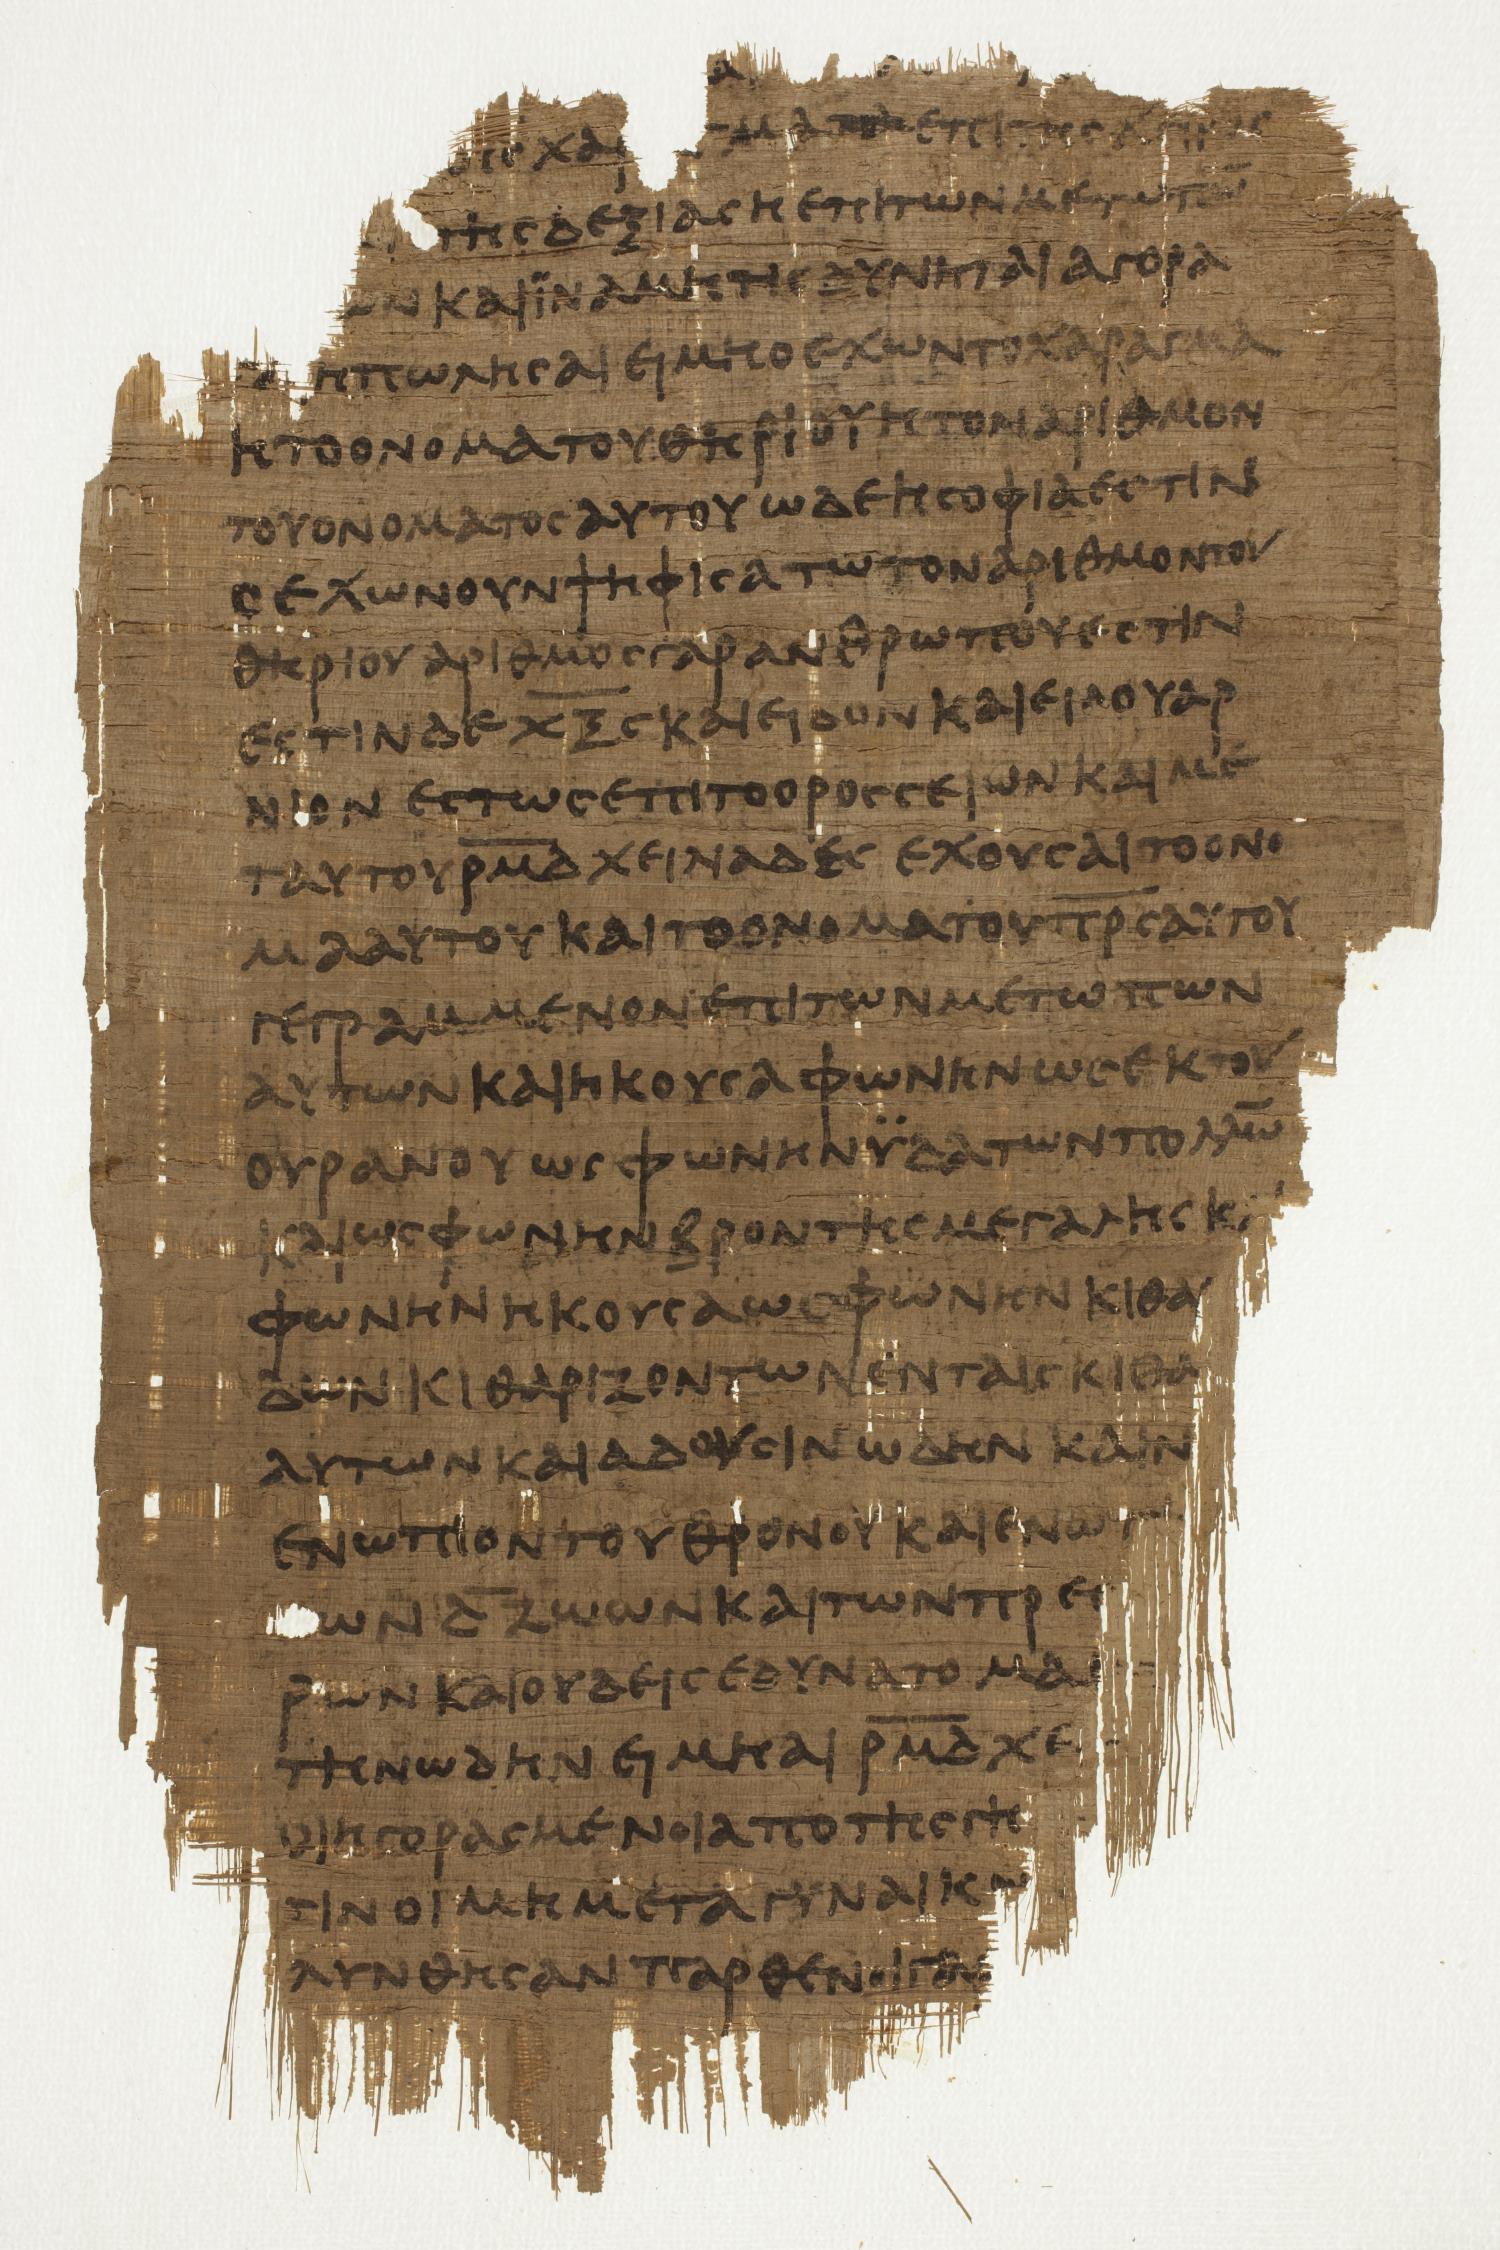 τηςδεξιαςηεπιτωνμετωπω̅
ων καιϊναμητιςδυνηται αγορα
ηπωλησαι ειμηοεχωντοχαραγμα
ητοονοματουθηριουητοναριθμον
τουονοματοςαυτουωδεησοφιαεστιν
οεχωνουνψηφισατωτοναριθμοντου
θηριουαριθμοςγαρανθρωπουεστιν
εστινδεχ̅ξ̅ϛκαιειδονκαιειδουαρ
νιον εστωςεπιτοοροςσειωνκαιμε
ταυτουρ̅μ̅δ̅χειναδες εχουσαιτοονο
μααυτουκαιτοονοματουπ̅ρ̅ς̅αυτου
γεγραμμενονεπιτωνμετωπων
αυτωνκαιηκουσαφωνηνωςεκτου
ουρανουωςφωνηνϋδατωνπολλω̅
καιωςφωνηνβροντηςμεγαληςκα
φωνηνηκουσαωςφωνηνκιθα
δωνκιθαριζοντωνενταιςκιθα
αυτωνκαιαδουσινωδηνκαιν
ενωπιοντουθρονουκαιενωπ
ωνδ̅ζωωνκαιτωνπρες
ρωνκαιουδειςεδυνατομα
τηνωδηνειμηαιρ̅μ̅δ̅χε
οιηγορασμενοιαποτηςγη
τινοιμημεταγυναικω
λυνθησανπαρθενοιγα